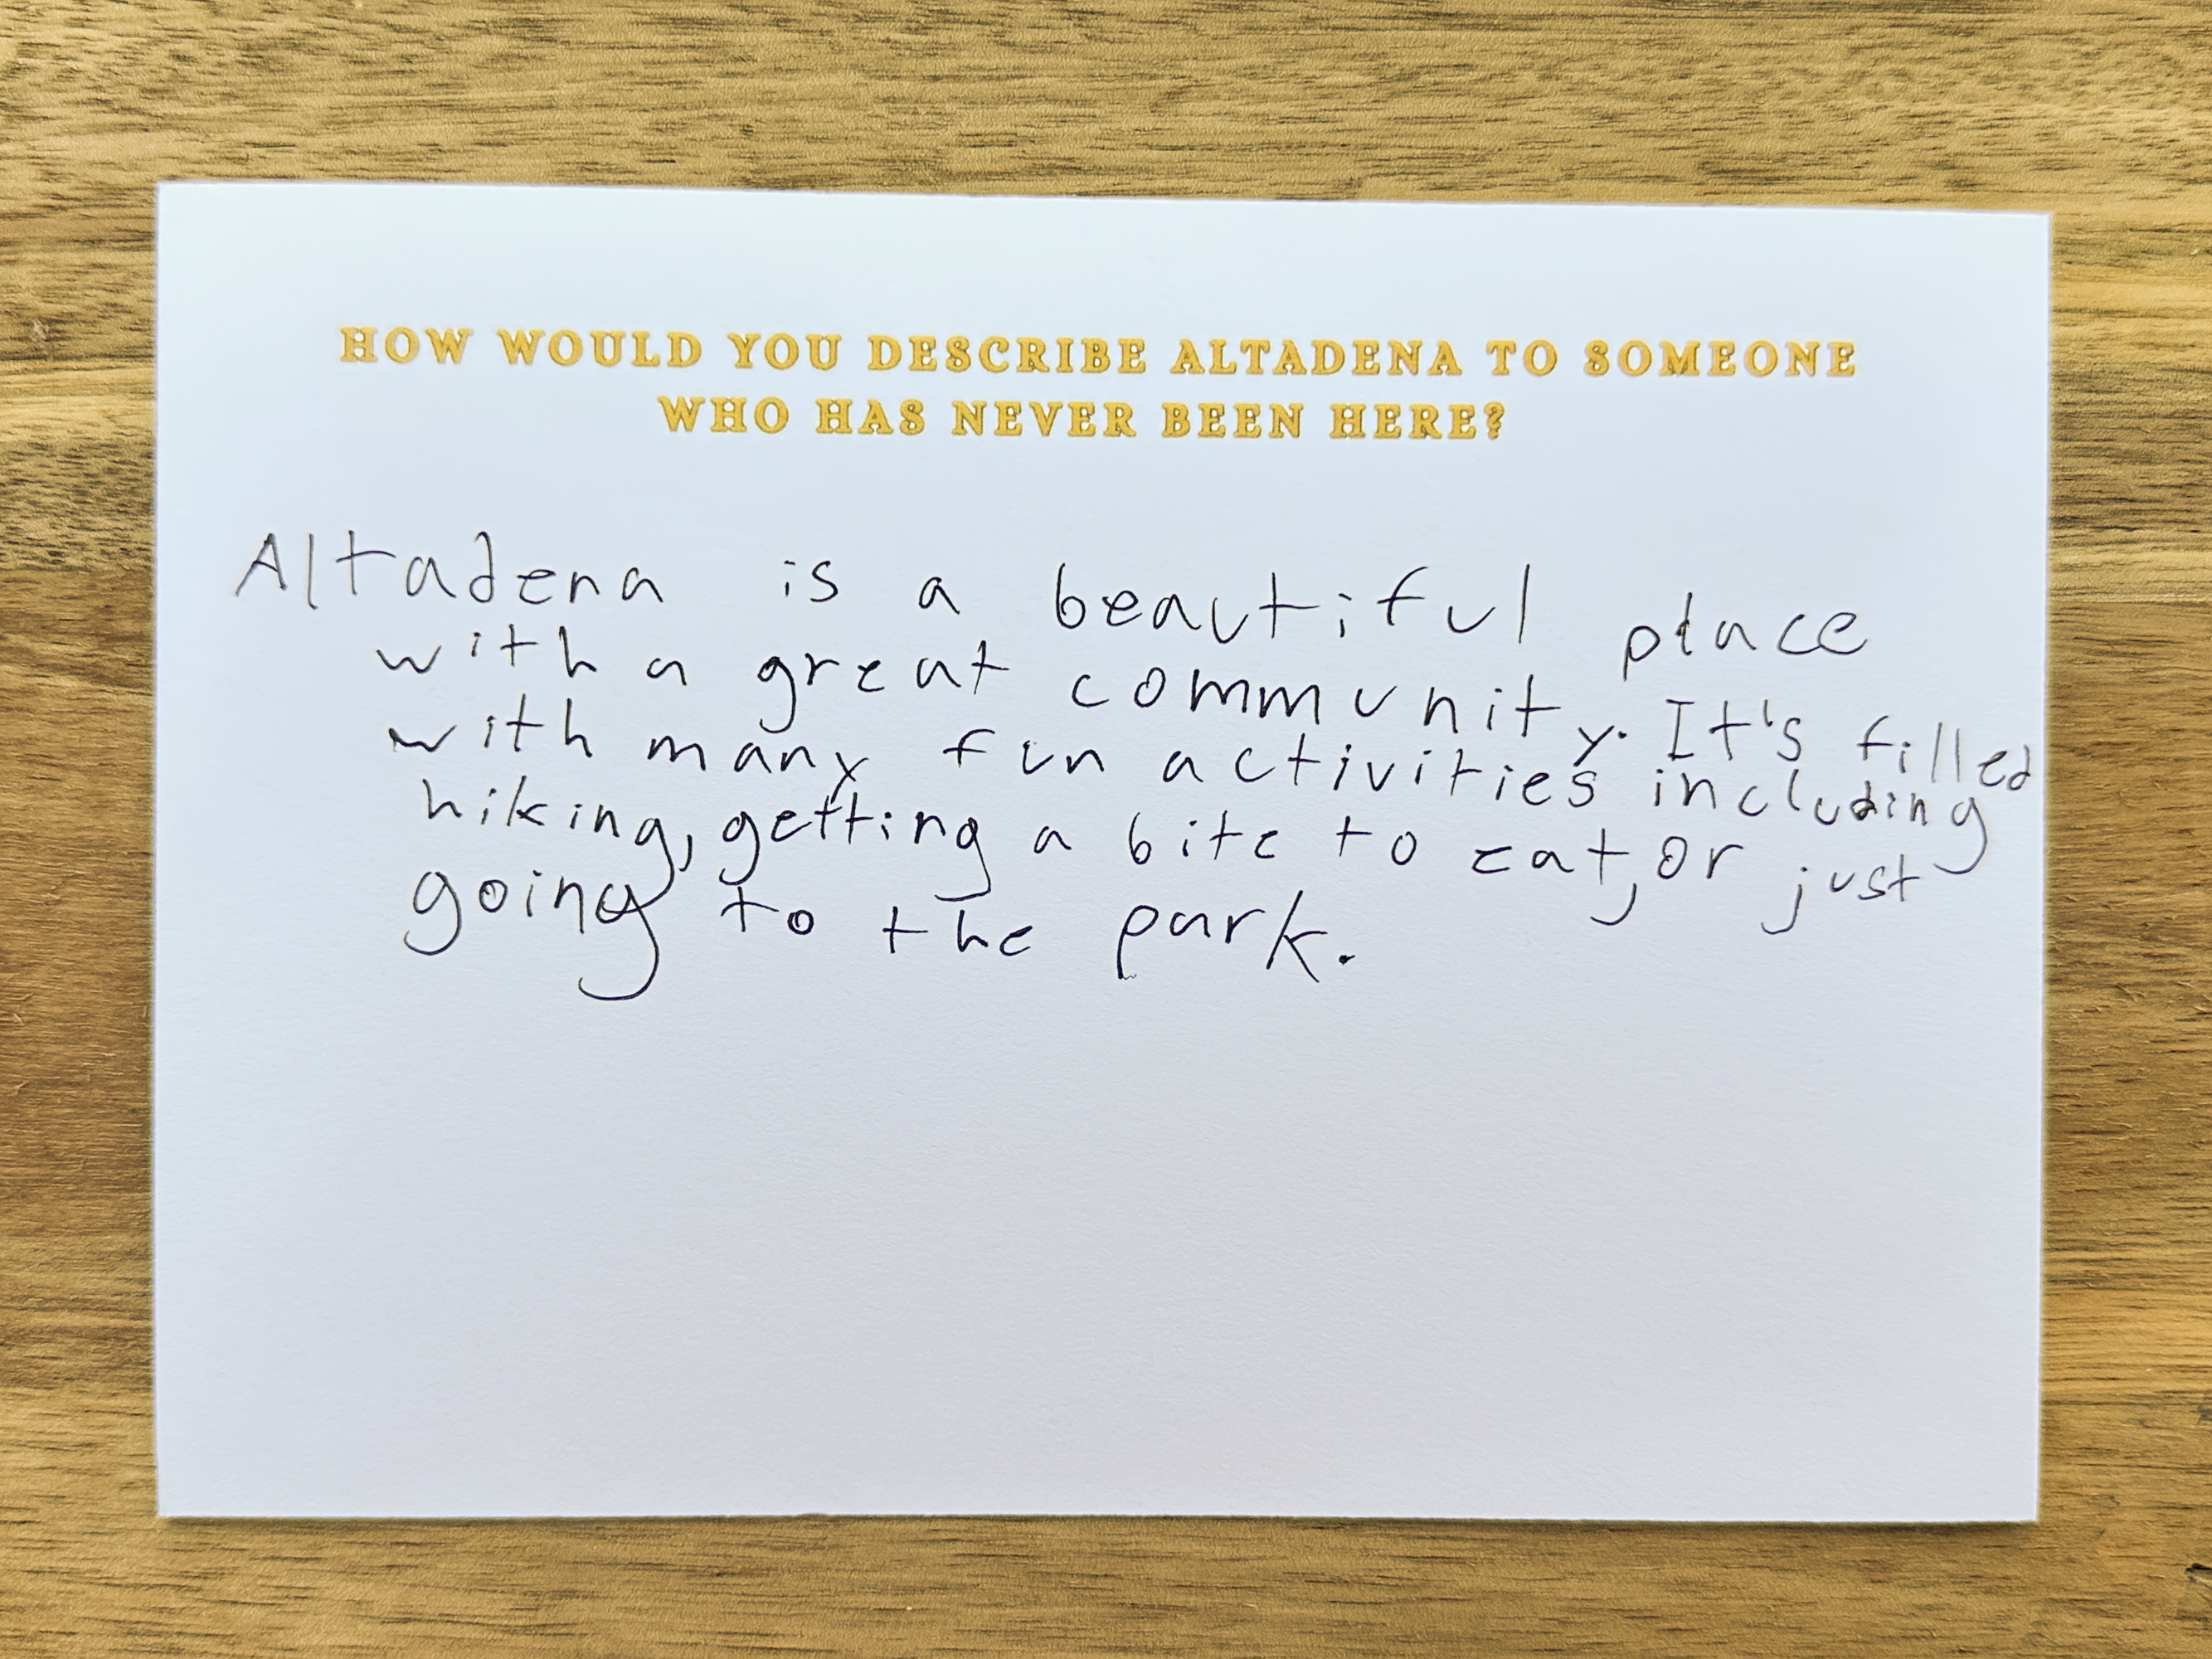 HOW WOULD YOU DESCRIBE ALTADENA TO SOMEONE
WHO HAS NEVER BEEN HERE?
Altadena is a beautiful place
with a great community. It's filled
with many fun activities including
hiking, getting a bite to eat, or just
going to the park.